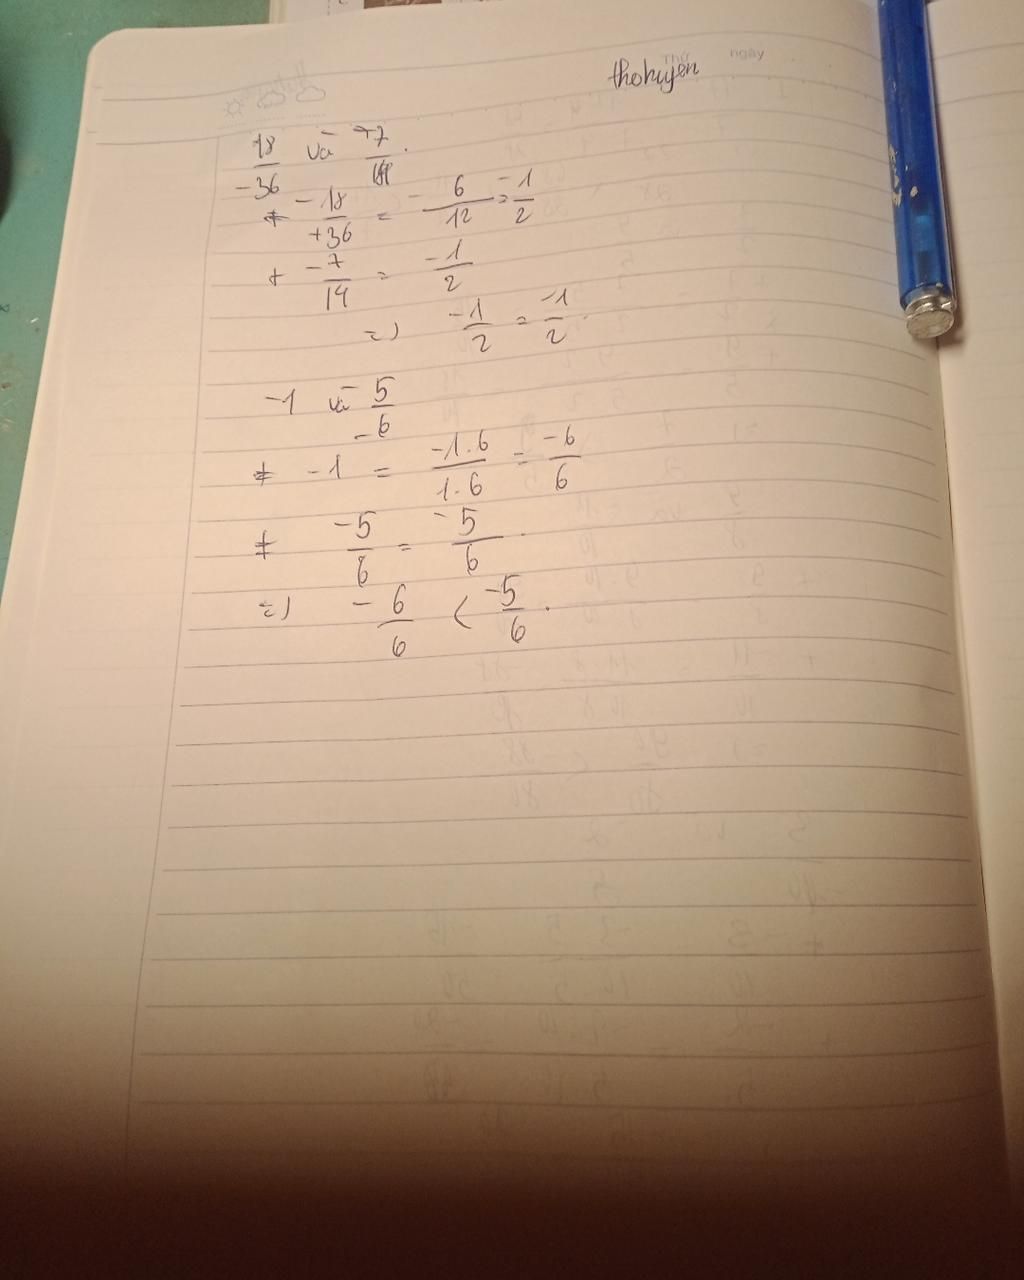 Thứ ngày
thohuyen
18/-36 và -7/14.
+ -18/+36 = -6/12 = -1/2
+ -7/14 = -1/2
=) -1/2 = -1/2.
-1 và 5/-6
+ -1 = -1.6/1.6 = -6/6
+ -5/6 = -5/6.
=) -6/6 < -5/6.